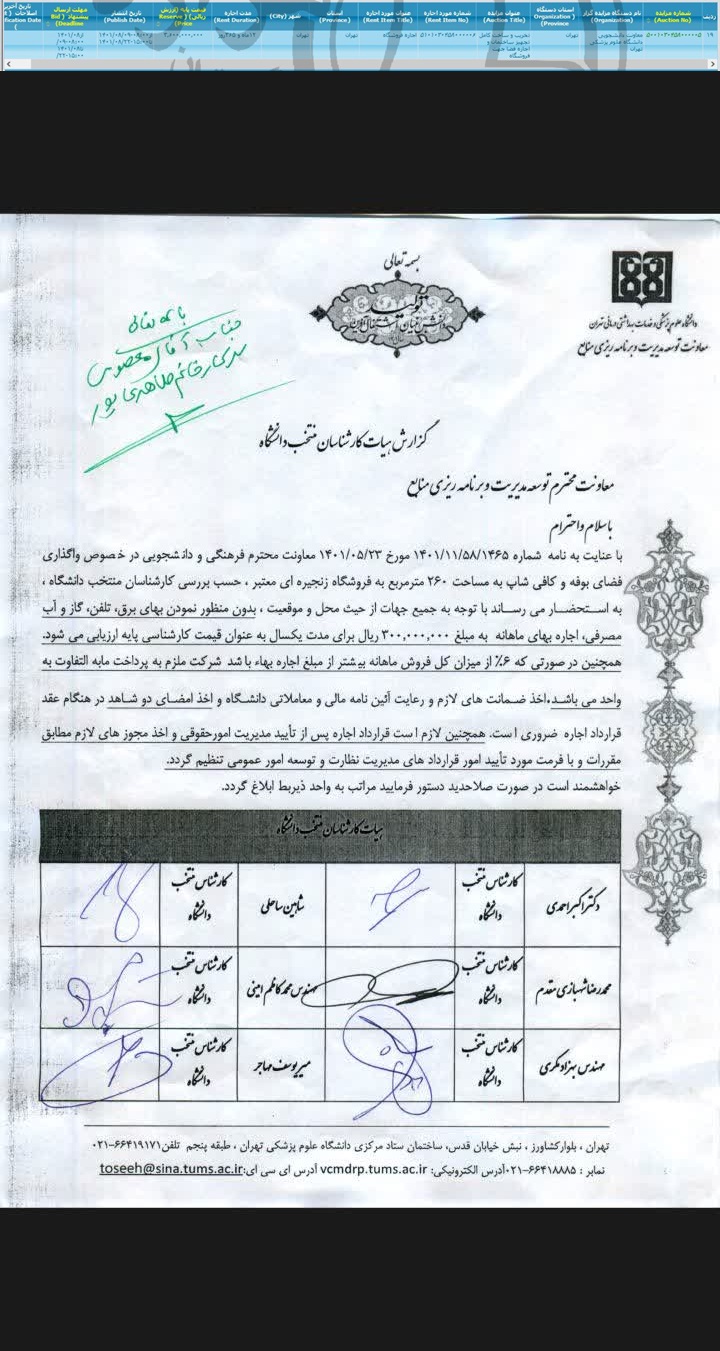 ردیف
شماره مزایده (Auction No)
نام دستگاه مزایده گزار (Organization)
استان دستگاه (Organization Province)
عنوان مزایده (Auction Title)
شماره مورد اجاره (Rent Item No)
عنوان مورد اجاره (Rent Item Title)
استان (Province)
شهر (City)
مدت اجاره (Rent Duration)
قیمت پایه (ارزش ریالی) (Reserve Price)
تاریخ انتشار (Publish Date)
مهلت ارسال پیشنهاد (Bid Deadline)
۱۹
معاونت دانشجویی دانشگاه علوم پزشکی تهران
تهران
اجاره فروشگاه
تهران
تهران
بسمه تعالی
تولید
دانش بنیان، اشتغال آفرین
دانشگاه علوم پزشکی و خدمات بهداشتی درمانی تهران
معاونت توسعه مدیریت و برنامه ریزی منابع
جناب آقای
سرکار خانم
گزارش هیات کارشناسان منتخب دانشگاه
معاونت محترم توسعه مدیریت و برنامه ریزی منابع
باسلام واحترام
با عنایت به نامه شماره ۱۴۰۱/۱۱/۵۸/۱۴۶۵ مورخ ۱۴۰۱/۰۵/۲۳ معاونت محترم فرهنگی و دانشجویی در خصوص واگذاری
فضای بوفه و کافی شاپ به مساحت ۲۶۰ مترمربع به فروشگاه زنجیره ای معتبر ، حسب بررسی کارشناسان منتخب دانشگاه ،
به استحضار می رساند با توجه به جمیع جهات از حیث محل و موقعیت ، بدون منظور نمودن بهای برق، تلفن، گاز و آب
مصرفی، اجاره بهای ماهانه به مبلغ ۳۰۰,۰۰۰,۰۰۰ ریال برای مدت یکسال به عنوان قیمت کارشناسی پایه ارزیابی می شود.
همچنین در صورتی که ۶٪ از میزان کل فروش ماهانه بیشتر از مبلغ اجاره بهاء باشد شرکت ملزم به پرداخت مابه التفاوت به
واحد می باشد.اخذ ضمانت های لازم و رعایت آئین نامه مالی و معاملاتی دانشگاه و اخذ امضای دو شاهد در هنگام عقد
قرارداد اجاره ضروری است. همچنین لازم است قرارداد اجاره پس از تأیید مدیریت امورحقوقی و اخذ مجوز های لازم مطابق
مقررات و با فرمت مورد تأیید امور قرارداد های مدیریت نظارت و توسعه امور عمومی تنظیم گردد.
خواهشمند است در صورت صلاحدید دستور فرمایید مراتب به واحد ذیربط ابلاغ گردد.
هیات کارشناسان منتخب دانشگاه
دکتر اکبر احمدی
کارشناس منتخب دانشگاه
شاهین ساحلی
کارشناس منتخب دانشگاه
محمدرضا شهبازی مقدم
کارشناس منتخب دانشگاه
مهندس محمد کاظم امینی
کارشناس منتخب دانشگاه
مهندس بهزاد مکری
کارشناس منتخب دانشگاه
میر یوسف مهاجر
کارشناس منتخب دانشگاه
تهران ، بلوارکشاورز ، نبش خیابان قدس، ساختمان ستاد مرکزی دانشگاه علوم پزشکی تهران ، طبقه پنجم تلفن۶۶۴۱۹۱۷۱-۰۲۱
نمابر : ۶۶۴۱۸۸۸۵-۰۲۱آدرس الکترونیکی: vcmdrp.tums.ac.ir آدرس ای سی ای:toseeh@sina.tums.ac.ir